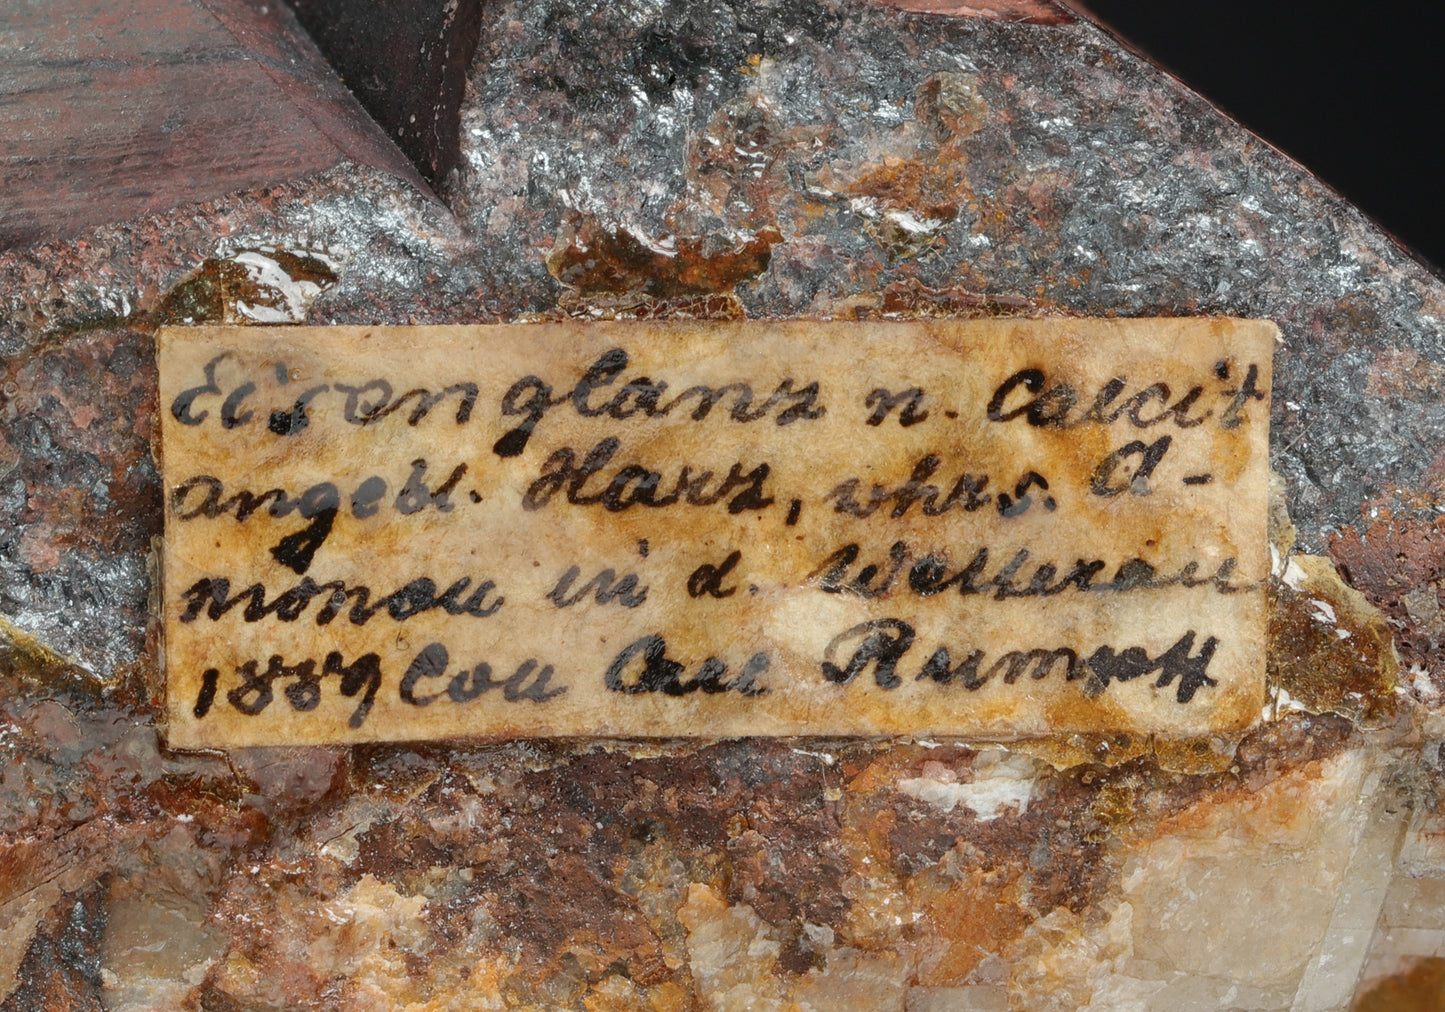 Eisenglanz n. Calcit
angebl. Harz, whrs. A-
monau in d. Wetterau
1889 Cou Carl Rumpff